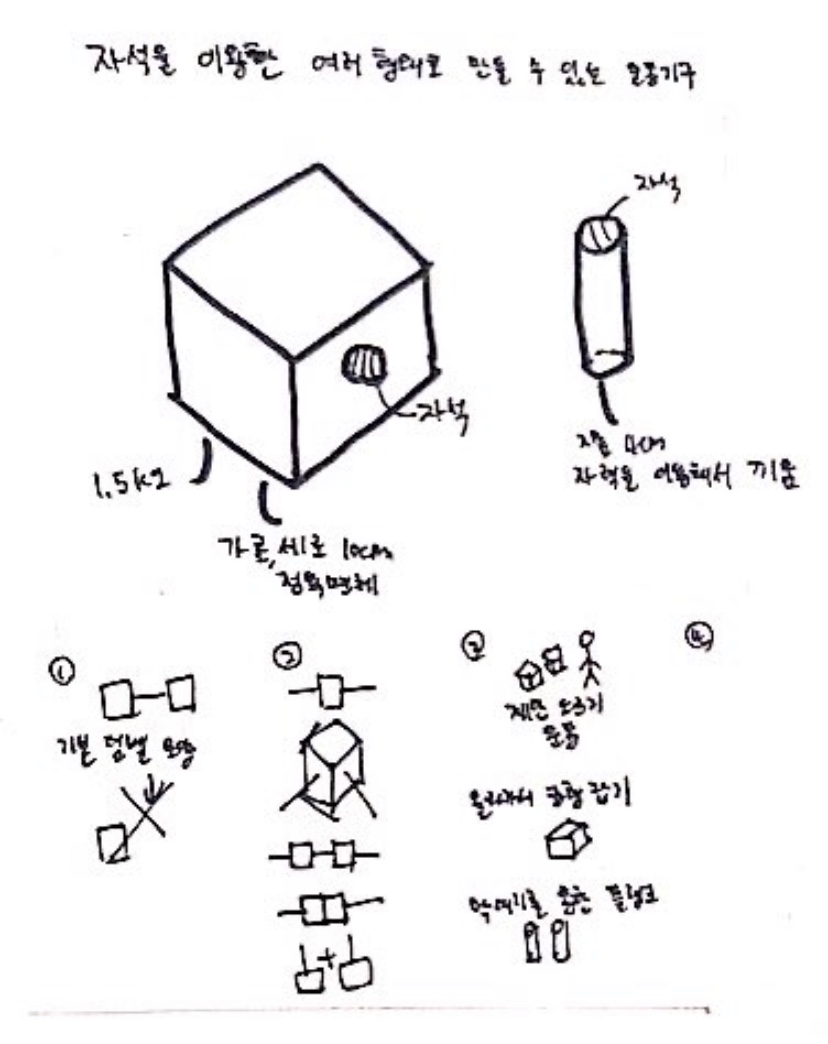 자석을 이용한 여러 형태로 만들 수 있는 운동기구
자석
자석
1.5kg
가로,세로 10cm
정육면체
지름 4cm
자력을 이용해서 끼움
①
기본 덤벨 모양
②
③
계단 오르기
운동
올라가서 균형 잡기
막대기를 통한 플랭크
④